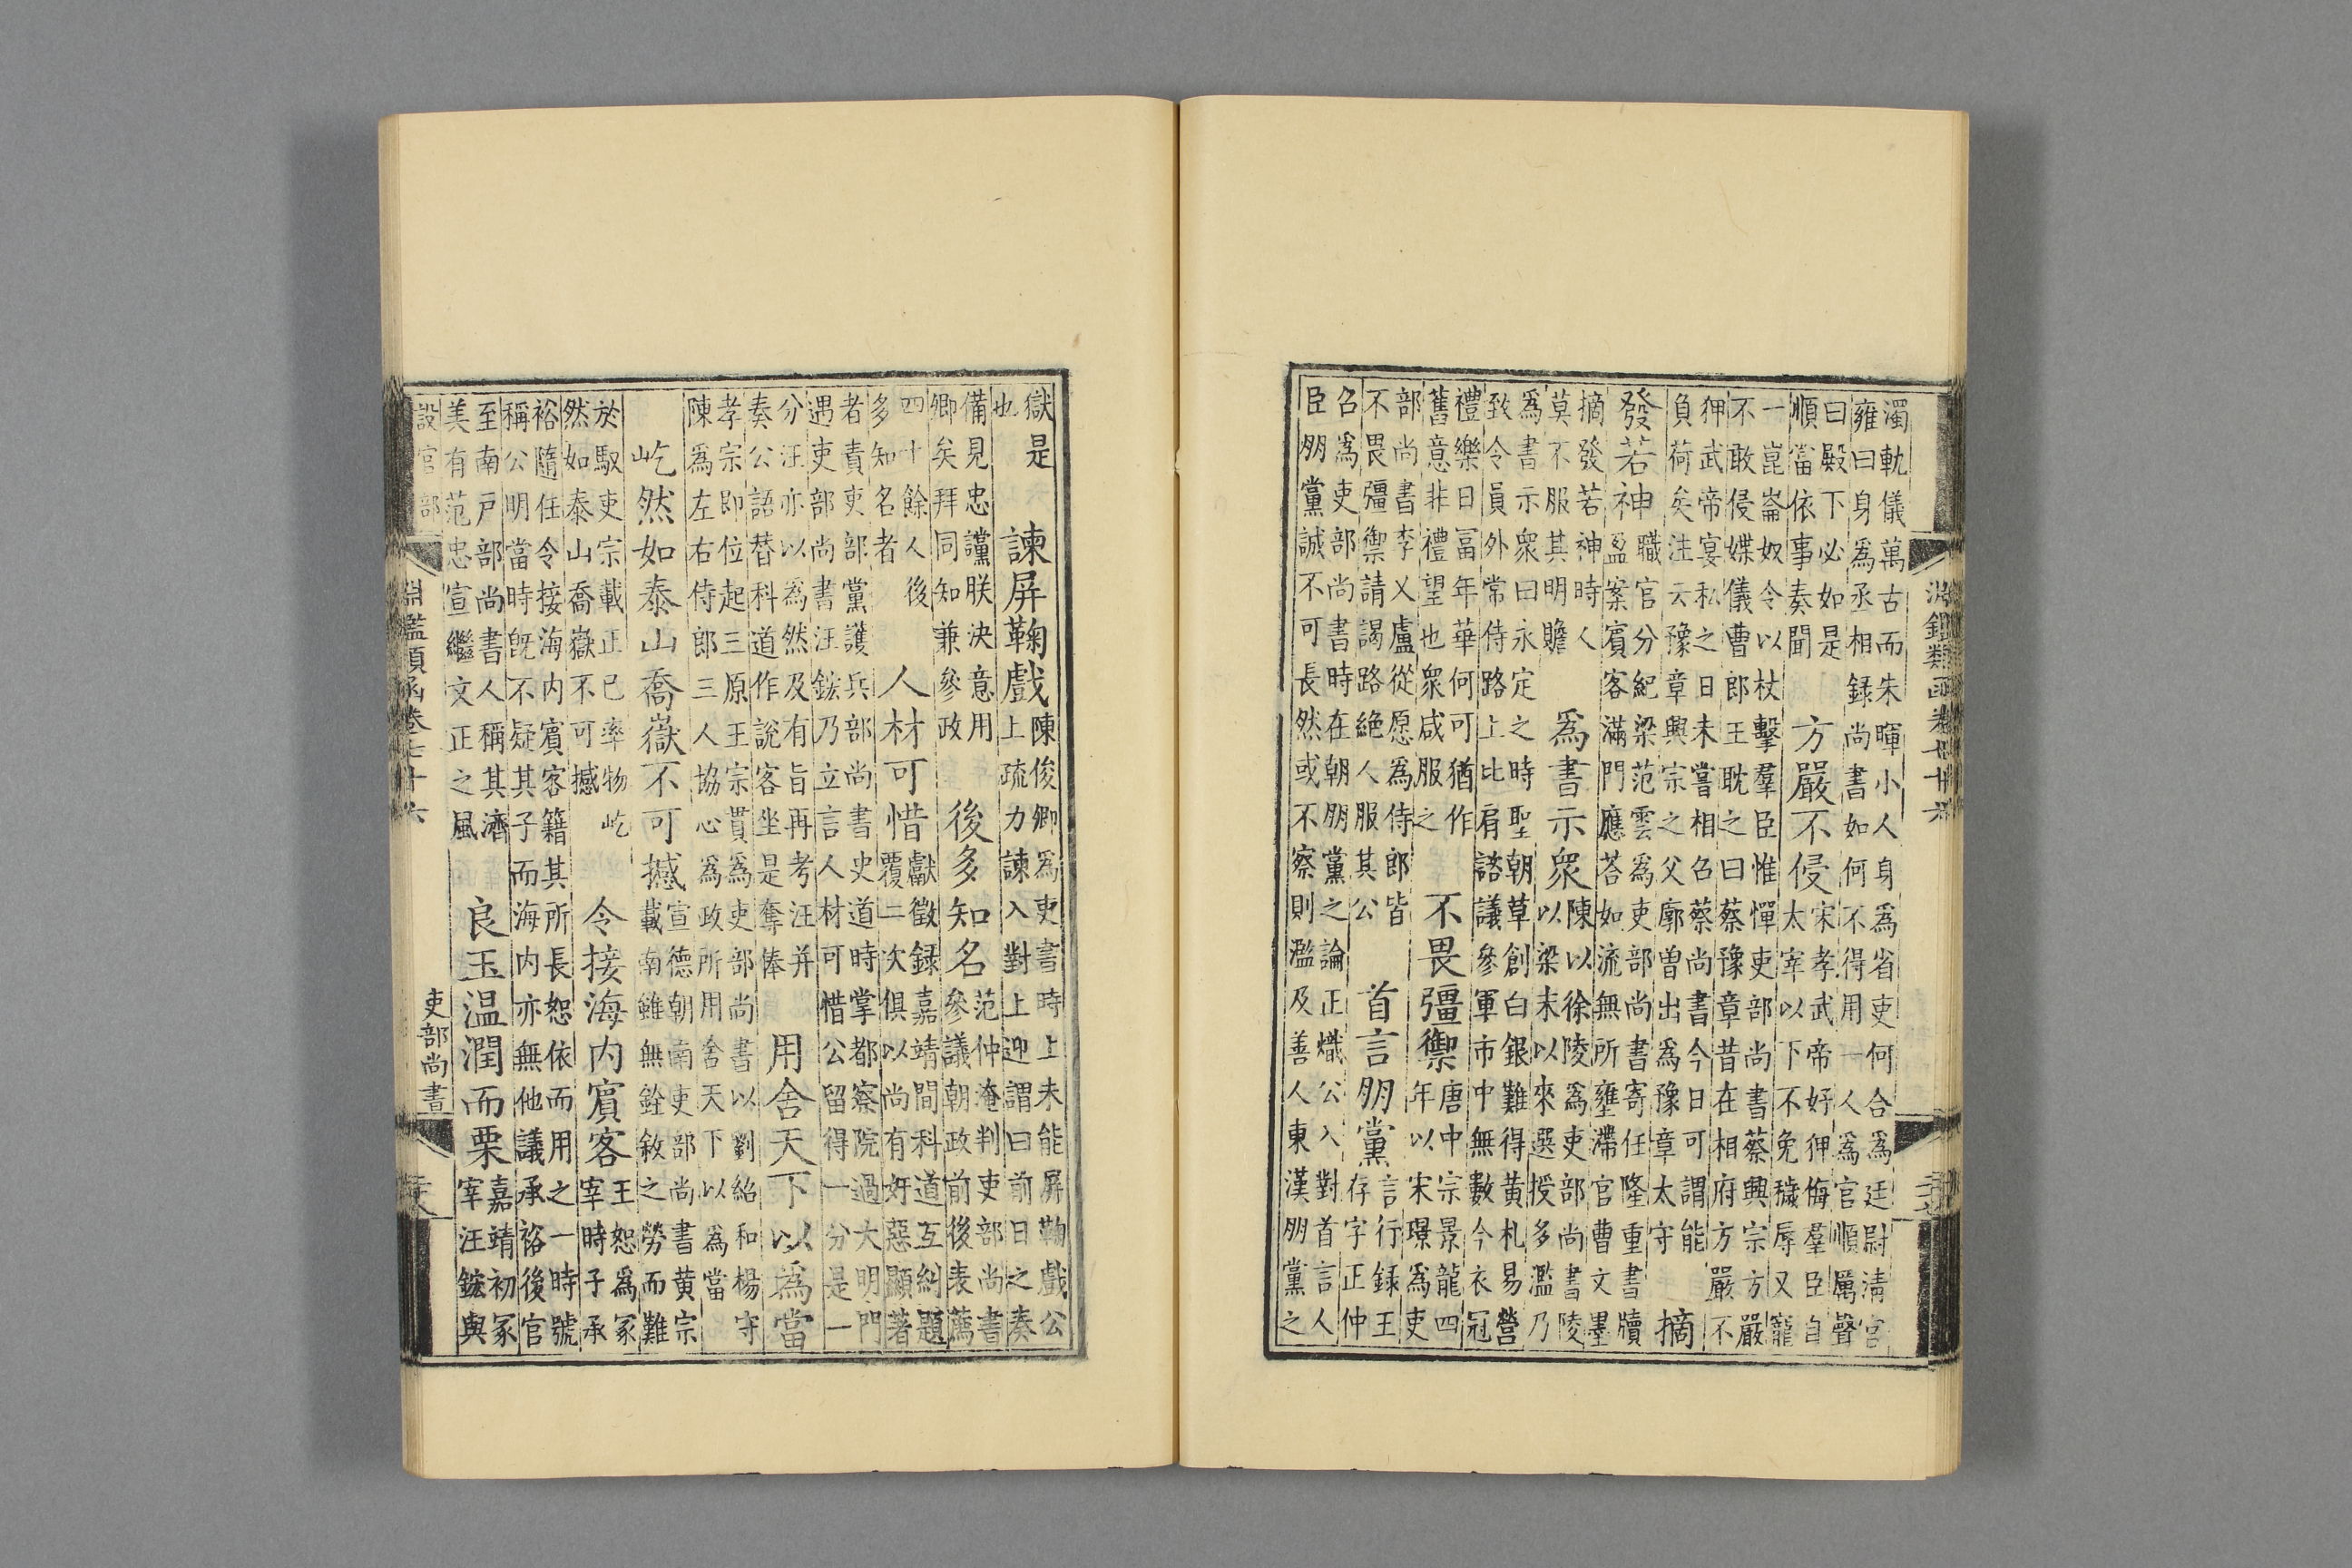 淵鑑類函卷
濁軌儀萬古而朱暉小人身為省吏何合為廷尉清官
雍曰身為丞相録尚書如何不得用一人為官順厲聲
曰殿下必如是
順當依事奏聞
方嚴不侵
宋孝武帝好狎侮羣臣自
太宰以下不免穢辱又寵
一崑崙奴令以杖擊羣臣惟憚吏部尚書蔡興宗方嚴
不敢侵媟儀曹郎王耽之曰蔡豫章昔在相府方嚴不
狎武帝宴私之日未嘗相召蔡尚書今日可謂能
負荷矣注云豫章興宗之父廓曽出為豫章太守
摘
發若神
職官分紀梁范雲為吏部尚書寄任隆重書牘
盈案賓客滿門應荅如流無所壅滯官曹文墨
摘發若神時人
莫不服其明贍
為書示衆
陳以徐陵為吏部尚書陵
以梁末以來選授多濫乃
為書示衆曰永定之時聖朝草創白銀難得黄札易營
致令員外常侍路上比肩諮議參軍市中無數今衣冠
禮樂日冨年華何可猶作
舊意非禮望也衆咸服之
不畏彊禦
唐中宗景龍四
年以宋璟為吏
部尚書李乂盧從愿為侍郎皆
不畏彊禦請謁路絶人服其公
首言朋黨
言行録王
存字正仲
召為吏部尚書時在朝朋黨之論正熾公入對首言人
臣朋黨誠不可長然或不察則濫及善人東漢朋黨之
獄是
也
諫屏鞠戲
陳俊卿為吏書時上未能屏鞠戲公
上疏力諫入對上迎謂曰前日之奏
備見忠讜朕決意用
卿矣拜同知兼參政
後多知名
范仲淹判吏部尚書
參議朝政前後表薦
四十餘人後
多知名者
人材可惜
獻徵録嘉靖間科道互糾題
覆二次俱以尚有奸惡顯著
者責吏部黨護兵部尚書史道時掌都察院過大明門
遇吏部尚書汪鋐乃立言人材可惜公留得一分是一
分汪亦以為然及有旨再考汪并
奏公語替科道作說客坐是奪俸
用舍天下以為當
孝宗即位起三原王宗貫為吏部尚書以劉紹和楊守
陳為左右侍郎三人協心為政所用舍天下以為當
屹然如泰山喬嶽不可撼
宣德朝南吏部尚書黄宗
載南雖無銓敘之勞而難
於馭吏宗載正已率物屹
然如泰山喬嶽不可撼
令接海内賓客
王恕為冢
宰時子承
裕隨任令接海内賓客籍其所長恕依而用之一時號
稱公明當時旣不疑其子而海内亦無他議承裕後官
至南戶部尚書人稱其濟
美有范忠宣繼文正之風
良玉溫潤而栗
嘉靖初冢
宰汪鋐與
設官部
淵鑑類函卷七十六
吏部尚書